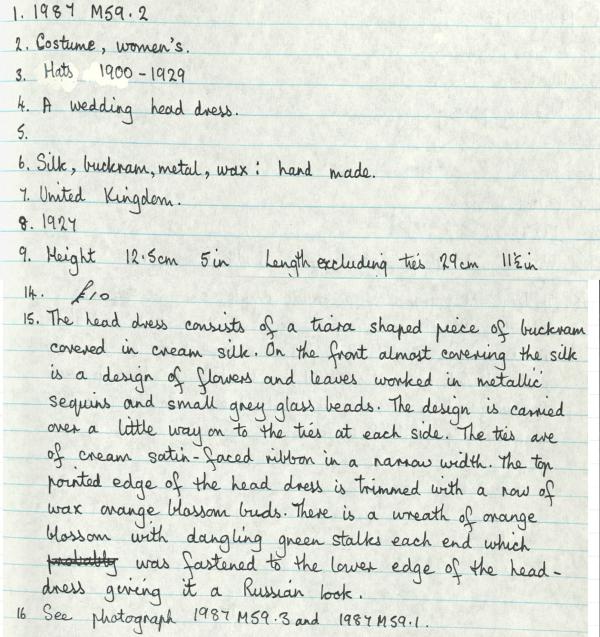 1. 1987 M59.2
2. Costume, women's.
3. Hats 1900-1929
4. A wedding head dress.
5.
6. Silk, buckram, metal, wax: hand made.
7. United Kingdom.
8. 1927
9. Height 12.5cm 5in Length excluding ties 29cm 11½in
14. £10
15. The head dress consists of a tiara shaped piece of buckram
covered in cream silk. On the front almost covering the silk
is a design of flowers and leaves worked in metallic
sequins and small grey glass beads. The design is carried
over a little way on to the ties at each side. The ties are
of cream satin-faced ribbon in a narrow width. The top
pointed edge of the head dress is trimmed with a row of
wax orange blossom buds. There is a wreath of orange
blossom with dangling green stalks each end which
probably was fastened to the lower edge of the head-
dress giving it a Russian look.
16 See photograph 1987 M59.3 and 1987 M59.1.